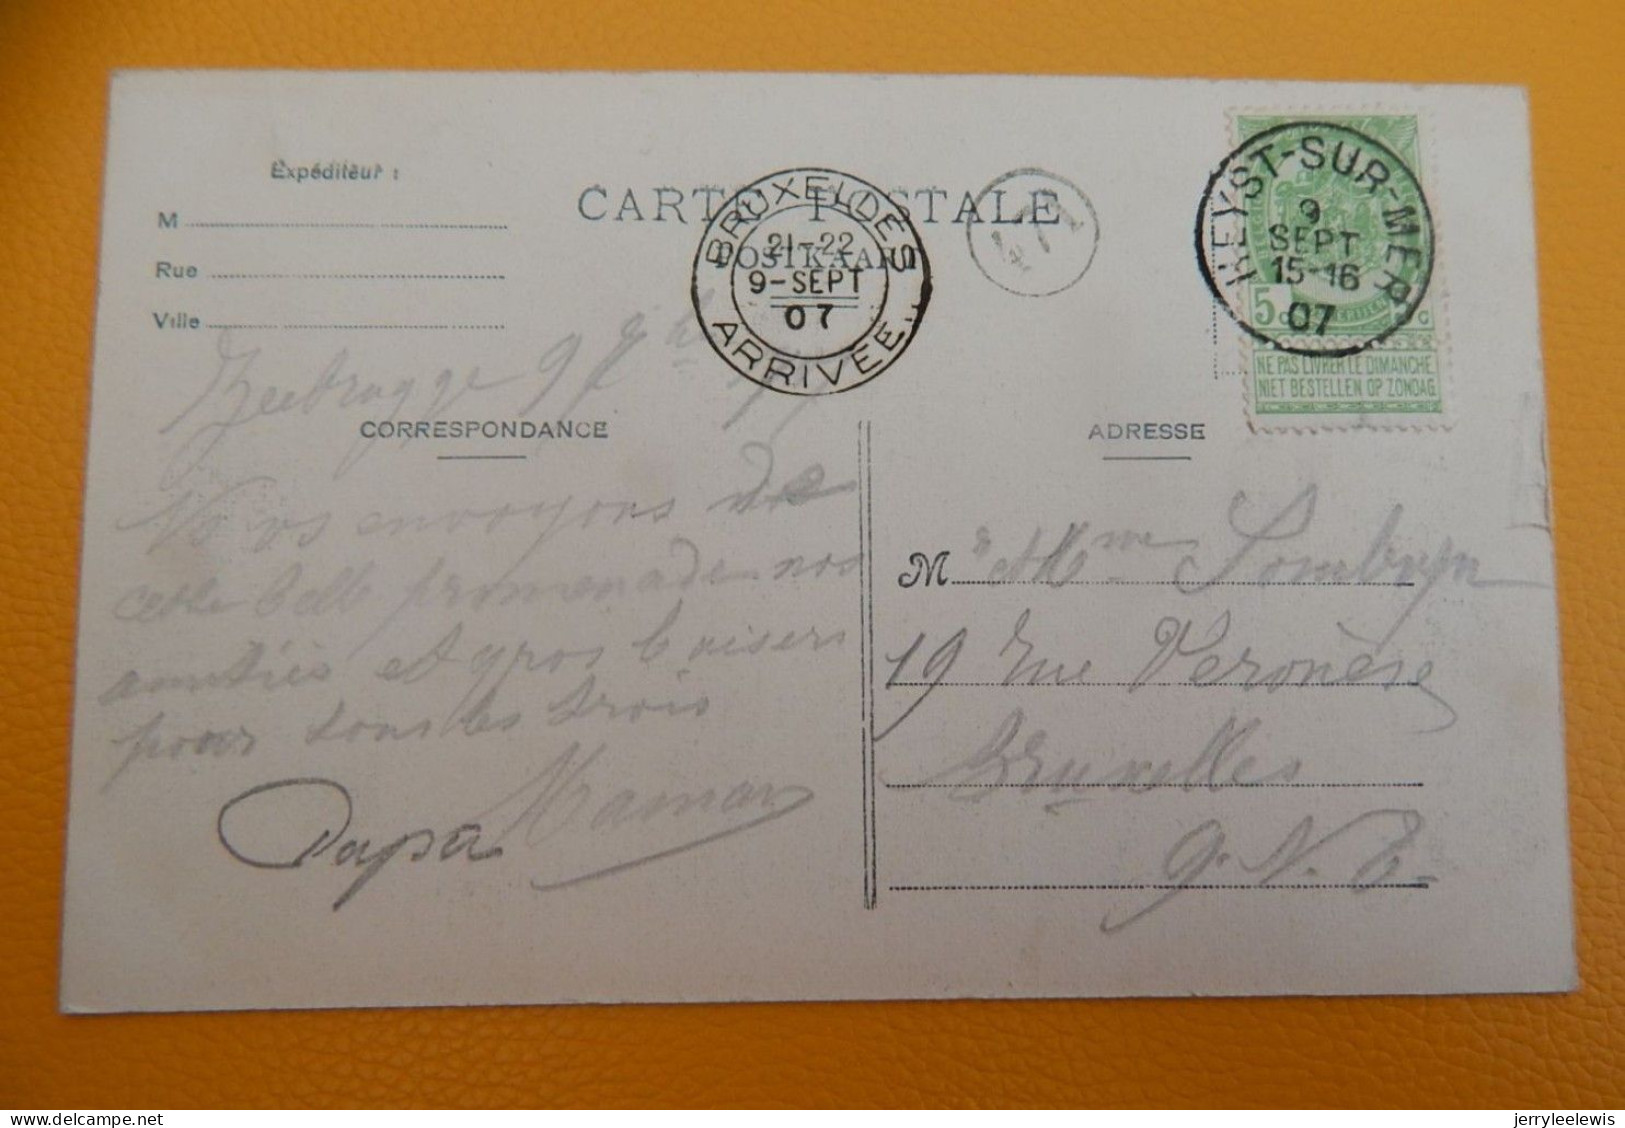 Expéditeur :
M
Rue
Ville
CARTE POSTALE
POSTKAART
BRUXELLES
21-22
9-SEPT
07
ARRIVEE
HEYST-SUR-MER
9
SEPT
15-16
07
5
NE PAS LIVRER LE DIMANCHE
NIET BESTELLEN OP ZONDAG
CORRESPONDANCE
ADRESSE
Zeebrugge 9
Vous envoyons de
cette belle promenade nos
amitiés et gros baisers
pour tous les trois
Maman
Papa
M Mme
19 rue Veronèse
Bruxelles
N. E.
jerryleelewis